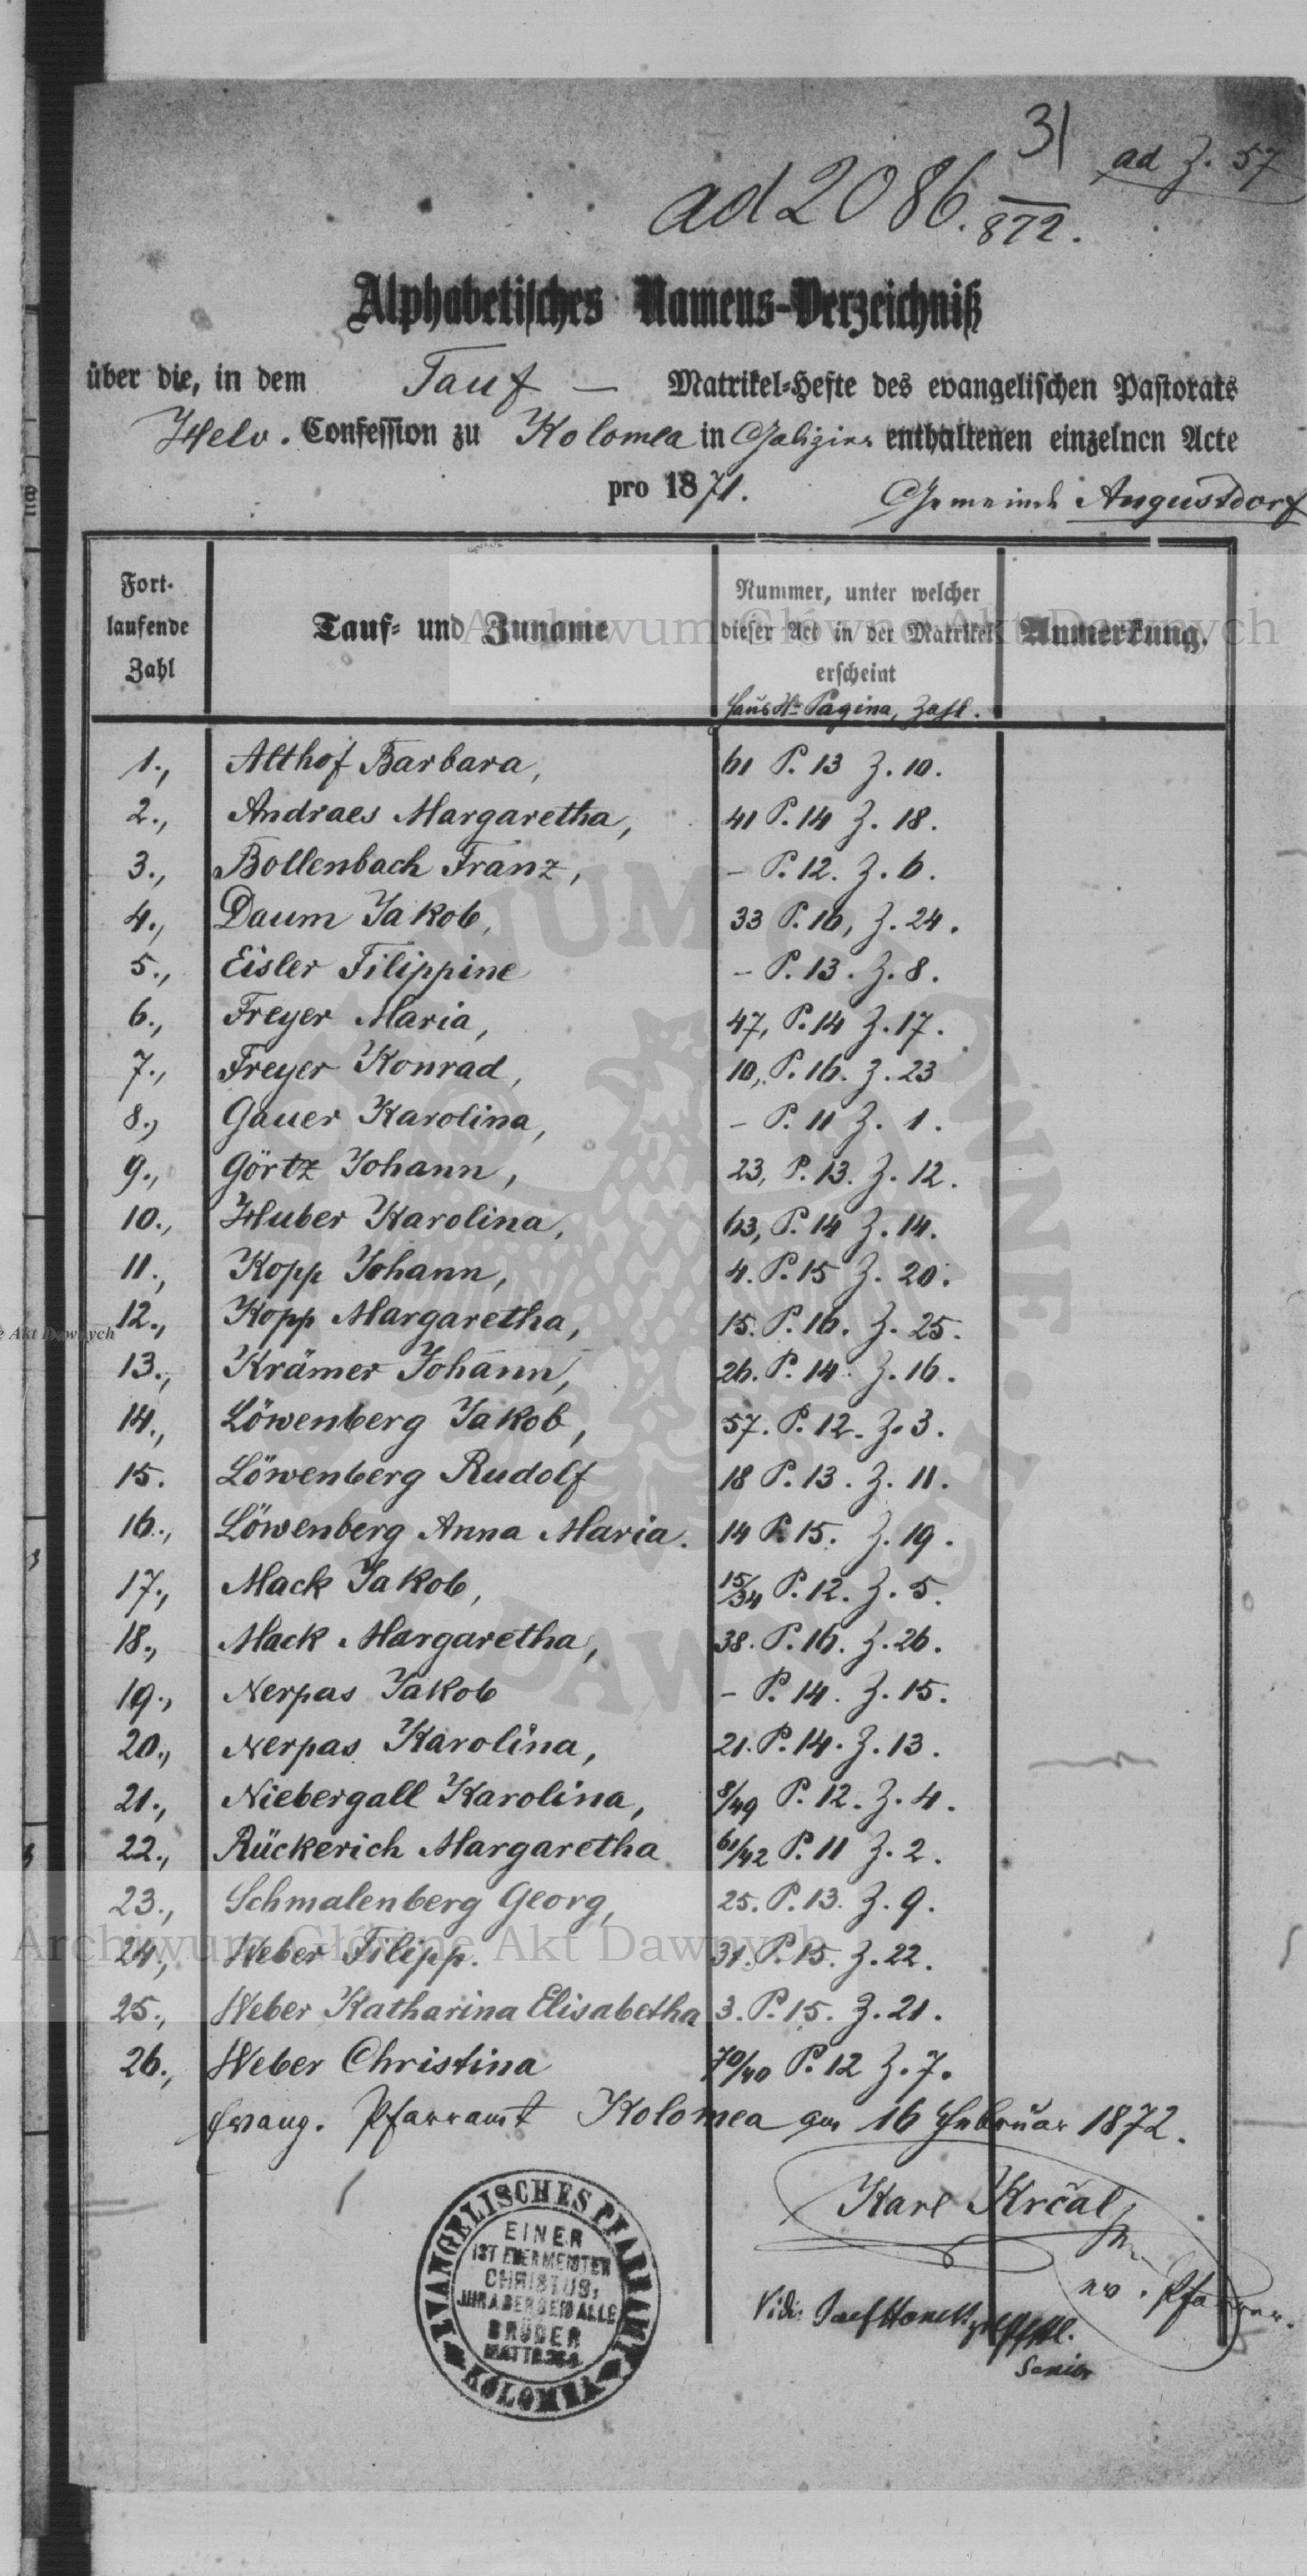 31
ad 2086. 872.
ad Z. 57
Alphabetisches Namens-Verzeichniß
über die, in dem Tauf — Matrikel-Hefte des evangelischen Pastorats
Helv. Confession zu Kolomea in Galizien enthaltenen einzelnen Acte
pro 1871. Gemeinde Augustdorf
Fort-
laufende
Zahl
Tauf- und Zuname
Nummer, unter welcher
dieser Act in der Matrikel
erscheint
Haus Nr Pagina, Zahl.
Anmerkung.
Archiwum Główne Akt Dawnych
1., Althof Barbara, 61 P. 13 Z. 10.
2., Andraes Margaretha, 41 P. 14 Z. 18.
3., Bollenbach Franz, – P. 12. Z. 6.
4., Daum Jakob, 33 P. 16, Z. 24.
5., Eisler Filippine – P. 13. Z. 8.
6., Freyer Maria, 47, P. 14 Z. 17.
7., Freyer Konrad, 10, P. 16. Z. 23
8., Gauer Karolina, – P. 11 Z. 1.
9., Görtz Johann, 23, P. 13. Z. 12.
10., Huber Karolina, 63, P. 14 Z. 14.
11., Kopp Johann, 4. P. 15 Z. 20.
12., Kopp Margaretha, 15. P. 16. Z. 25.
13., Krämer Johann, 26. P. 14. Z. 16.
14., Löwenberg Jakob, 57. P. 12. Z. 3.
15. Löwenberg Rudolf 18 P. 13. Z. 11.
16., Löwenberg Anna Maria. 14 P. 15. Z. 19.
17., Mack Jakob, 15/34 P. 12. Z. 5.
18., Mack Margaretha, 38. P. 16. Z. 26.
19., Nerpas Jakob – P. 14. Z. 15.
20., Nerpas Karolina, 21. P. 14. Z. 13.
21., Niebergall Karolina, 8/49 P. 12. Z. 4.
22., Rückerich Margaretha 61/42 P. 11 Z. 2.
23., Schmalenberg Georg, 25. P. 13. Z. 9.
24., Weber Filipp. 31. P. 15. Z. 22.
Archiwum Główne Akt Dawnych
25., Weber Katharina Elisabetha 3. P. 15. Z. 21.
26., Weber Christina 70/40 P. 12 Z. 7.
Evang. Pfarramt Kolomea am 16 Februar 1872.
Karl Krčal
ev. Pfarrer.
EVANGELISCHES PFARRAMT
KOLOMEA
EINER
IST EUER MEISTER
CHRISTUS,
IHR ABER SEID ALLE
BRÜDER
Vidi
Senior